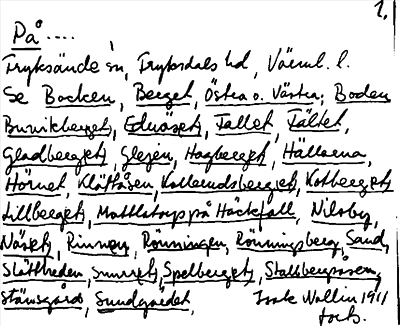 1.
På .....
Fryksände sn, Fryksdals hd, Värml. l.
Se Backen, Berget, Östra o. Västra, Boden
Burrikberget, Edväset, Fallet, Fältet,
Gladberget, Glejen, Hagberget, Hällarna,
Hörnet, Klättåsen, Kolbrudsberget, Kolberget,
Lillberget, Mattlatorp på Häckfall, Nilsby,
Näset, Rinnen, Rönningen, Rönningsberg, Sand,
Slättheden, Smurret, Spelberget, Stallbergsåsen,
Stämsgård, Sundgärdet, Isak Wallin 1911